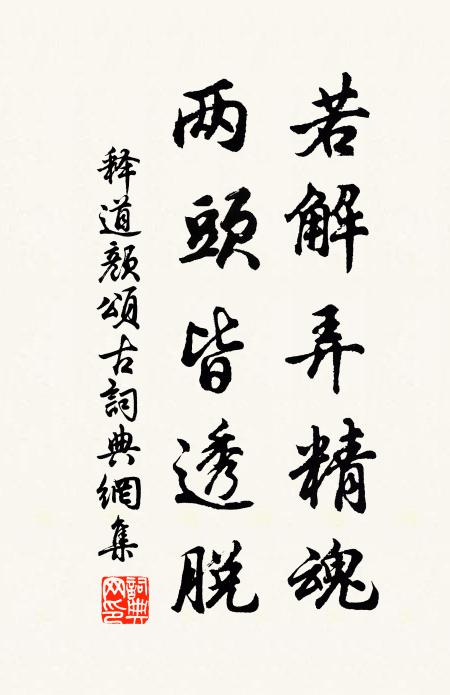 若解弄精魂
两頭皆透脱
释道颜頌古詞典網集
詞典网印